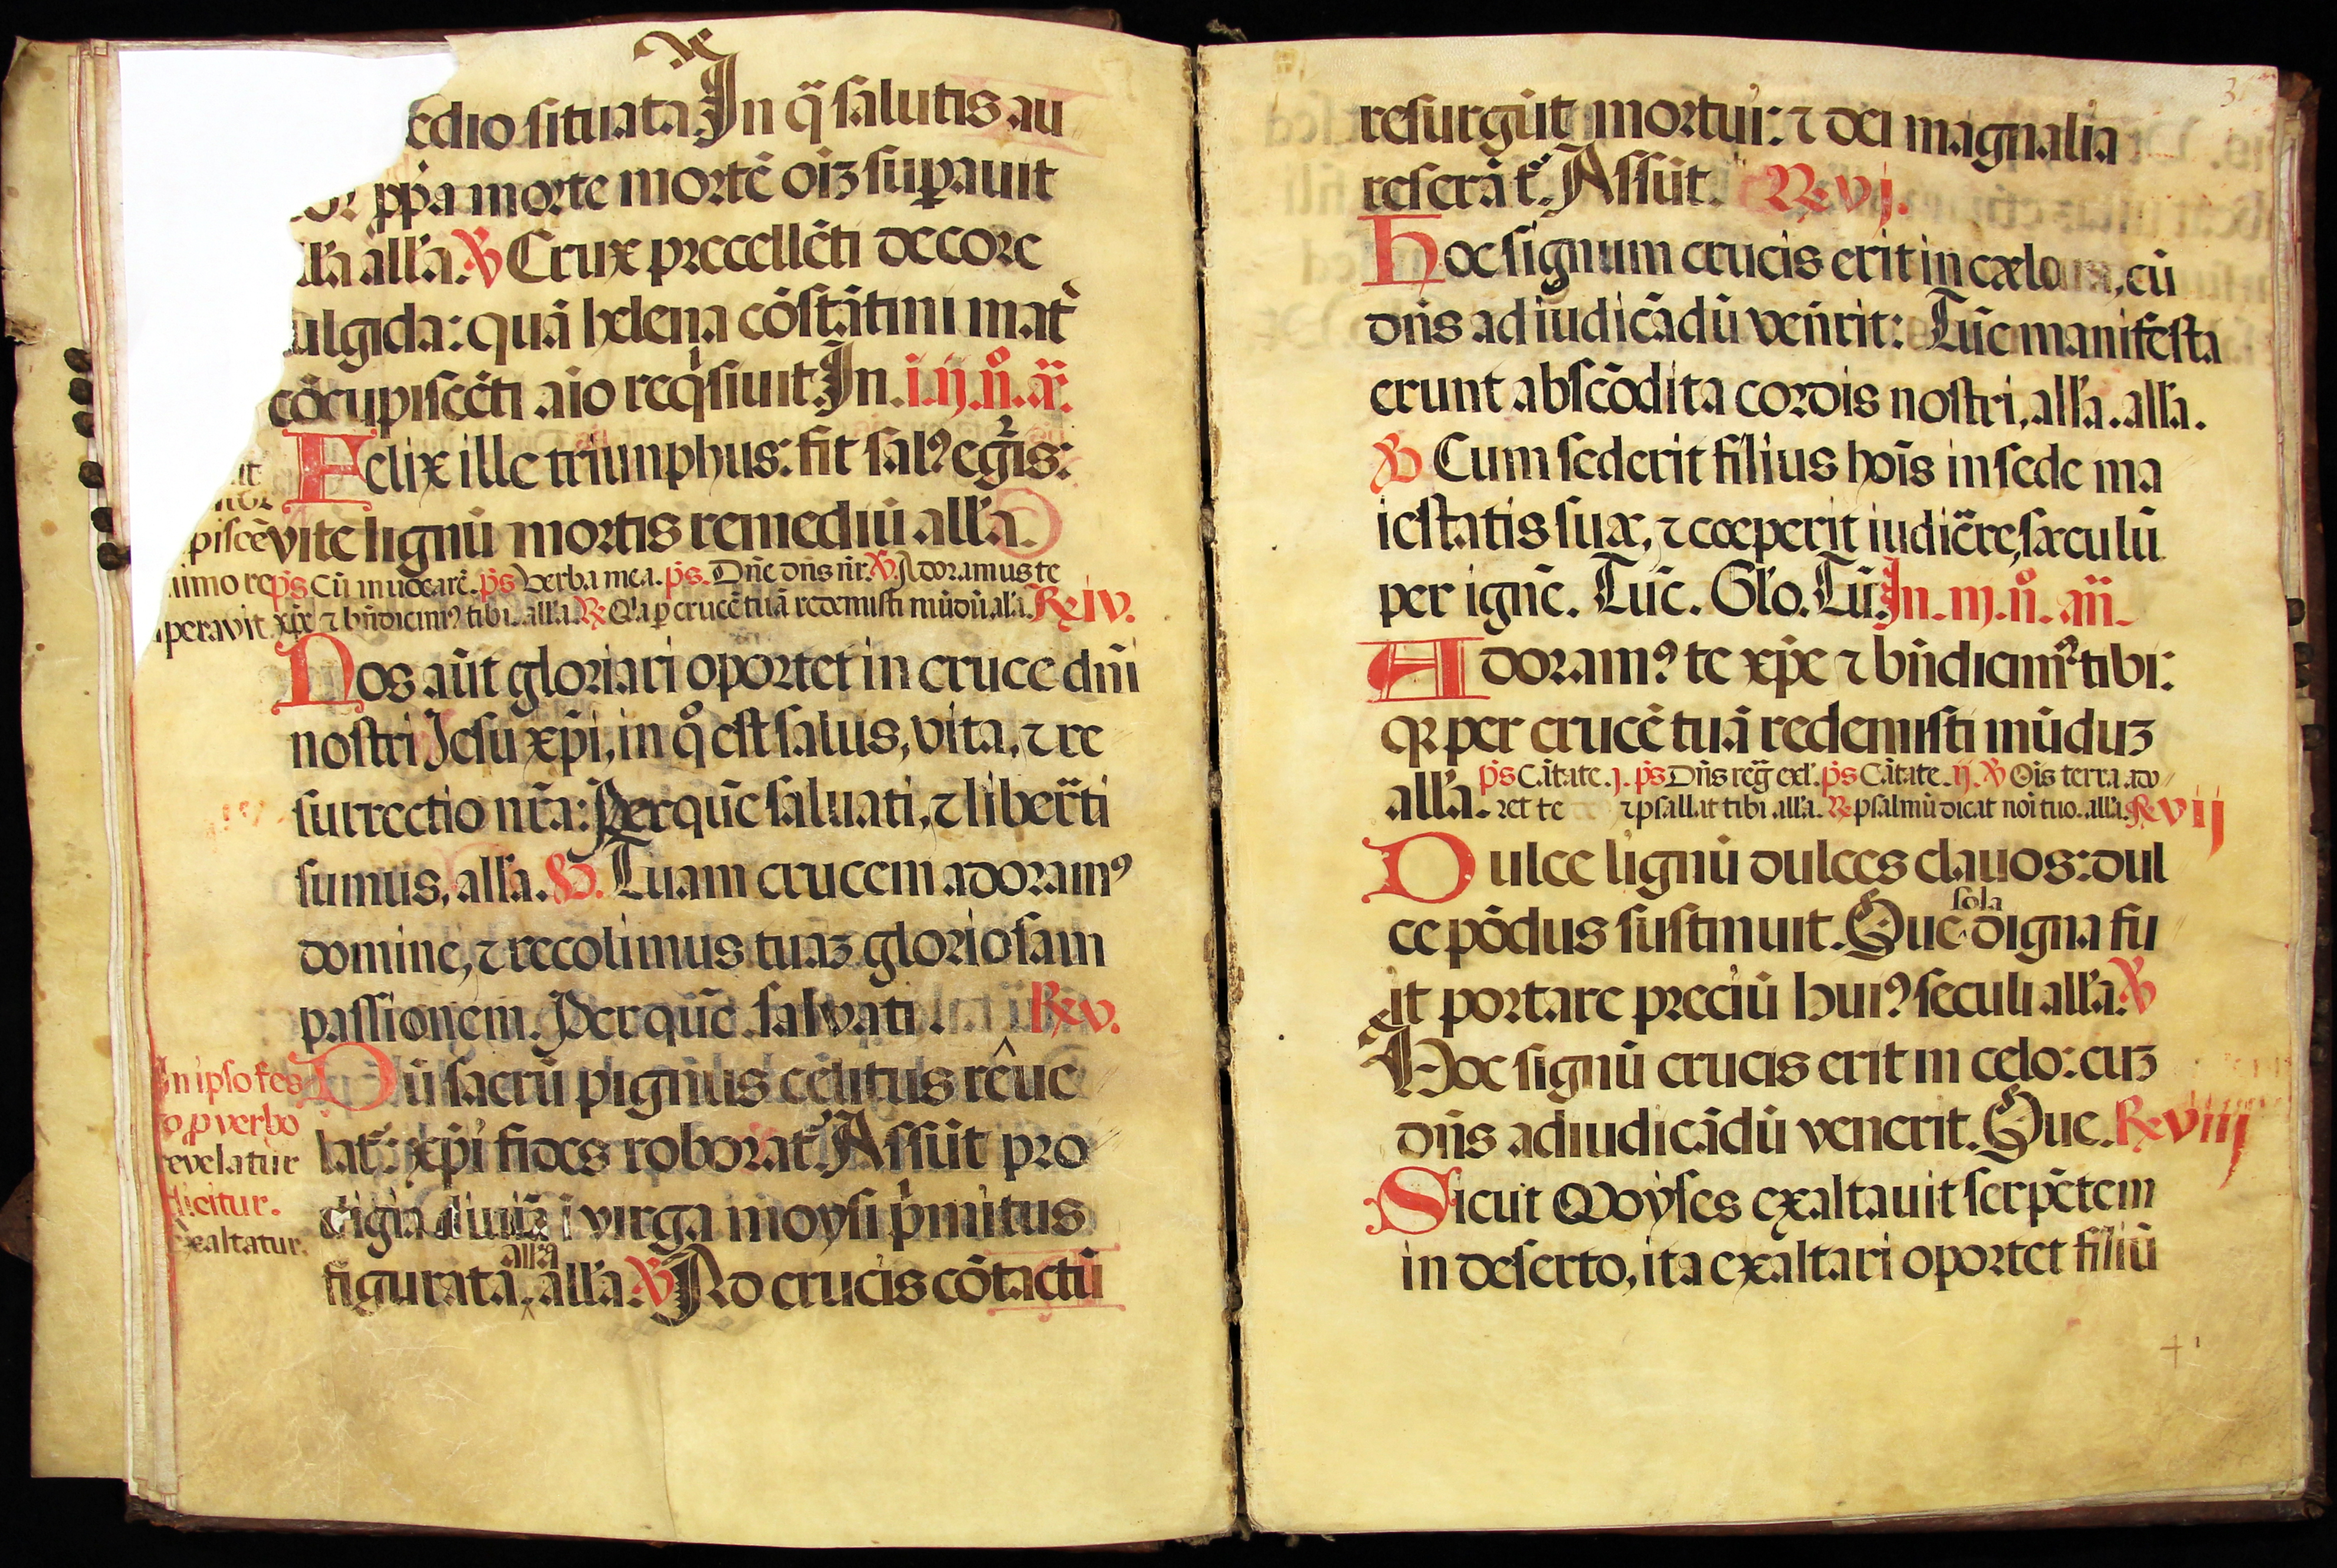 edio situata. In q̃ salutis au
ꝓp̃a morte mortē oīꝫ suꝑauit
all'a. ℣ Crux precellēti decore
ulgida: quā helena cōstātini mat̃
cōcupiscēti aīo reqͥsiuit. In. i. ij. n̊. añ.
Felix ille triunphus: fit salꝰ egr̃is:
vite lignū mortis remediū all'a.
piscē
nimo re p̃s Cū inuocarē. p̃s Verba mea. p̃s. Dñe dñs ñr. ℣. Adoramus te
peravit xp̃e ⁊ bñdicimꝰ tibi. all'a. ℞ Q'a ꝑ crucē tuā redemisti mūdū, al'a. ℞ iv.
Nos aūt gloriari oportet in cruce dñi
nostri Jesu xp̃i, in q̊ est salus, vita, ⁊ re
surrectio nr̃a: Per quē saluati, ⁊ liber̃ti
sumus, all'a. ℣. Tuam crucem adoramꝰ
domine, ⁊ recolimus tuaꝫ gloriosam
passionem. Per quē. salvati. ℞ v.
In ipso fes
Dū sacrū pignus celitus reue
o, ꝓ verbo
lat̃: xp̃i fides roborat̃. Assūt pro
revelatur
dicitur.
digia diuīa ī virga moysi p̃mitus
exaltatur.
all'a
figurata, all'a ℣ Ad crucis cōtactū
resurgūt mortui: ⁊ dei magnalia
reserāt̃. Assūt. ℞ vj.
Hoc signum crucis erit in cælo, cū
dñs ad iudicādū veñrit: Tūc manifesta
erunt abscōdita cordis nostri, all'a. all'a.
℣ Cum sederit filius hoīs in sede ma
iestatis suæ, ⁊ cœperit iudic̃re, sæculū
per ignē. Tūc. Glo. Tū. In. iij. n̊. añ.
Adoramꝰ te xp̃e ⁊ bñdicimꝰ tibi:
qꝛ per crucē tuā redemisti mūduꝫ
all'a. p̃s Cātate. j. p̃s Dñs reg̃ exl'. p̃s Cātate. ij. ℣ Oīs terra ado
ret te ⁊ psallat tibi all'a. ℞ psalmū dicat noī tuo. all'a. ℞ vij
Dulce lignū dulces clauos: dul
sola
ce pōdus sustinuit. Que digna fu
it portare preciū huiꝰ seculi all'a. ℣
Hoc signū crucis erit in celo: cuꝫ
dñs adiudicādū venerit. Que. ℞ viij
Sicut Moyses exaltauit serpētem
in deserto, ita exaltari oportet filiū